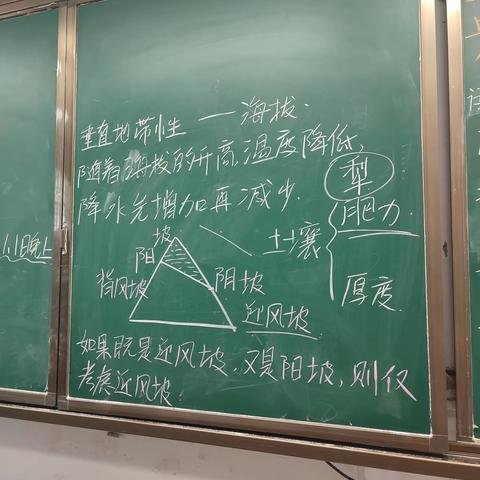 垂直地带性 — 海拔.
随着海拔的升高温度降低,
降水先增加再减少.
犁
肥力
土壤
厚度.
坡
阳
阴坡
背风坡
迎风坡
如果既是迎风坡,又是阳坡,则仅
考虑迎风坡.
日晚上